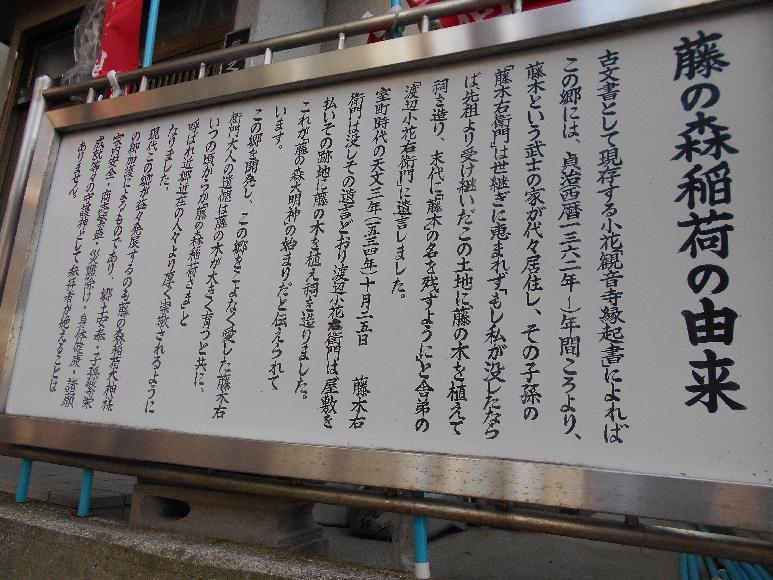 藤の森稲荷の由来
古文書として現存する小花観音寺縁起書によれば
この郷には、貞治西暦一三六二年〜)年間ころより、
藤木という武士の家が代々居住し、その子孫の
「藤木右衛門」は世継ぎに恵まれず「もし私が没したなら
ば先祖より受け継いだこの土地に「藤の木を植えて
祠を造り、末代に「藤木の名を残すように」と舎弟の
「渡辺小花右衛門」に遺言しました。
室町時代の天文三年(一五三四年)十月二五日 藤木右
衛門は没しその遺言どおり渡辺小花右衛門は屋敷を
払いその跡地に藤の木を植え祠を造りました。
これが藤の森大明神の始まりだと伝えられて
います。
この郷を開発し、この郷をこよなく愛した藤木右
衛門大人の遺徳は藤の木が大きく育つと共に、
いつの頃からか藤の森稲荷さまと
呼ばれ近郷近在の人々より厚く崇敬されるように
なりました。
現代この郷が益々発展するのも藤の森稲荷大神様
の御加護によるものであり、郷土安泰・子孫繁栄
家内安全・商売繁盛・災難除け・身体健康・諸願
成就等々の守護神として参拝者が絶えることは
ありません。